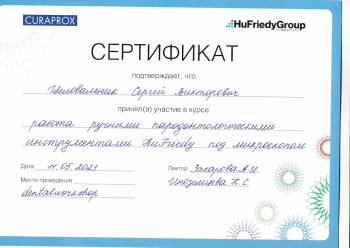 CURAPROX
HuFriedyGroup
СЕРТИФИКАТ
подтверждает, что
Целовальник Сергей Викторович
принял(а) участие в курсе
работа ручными пародонтологическими
инструментами HuFriedy под микроскопом
Дата 11.05.2021 Лектор Захарова А.И.
Место проведения
dentalworkshop